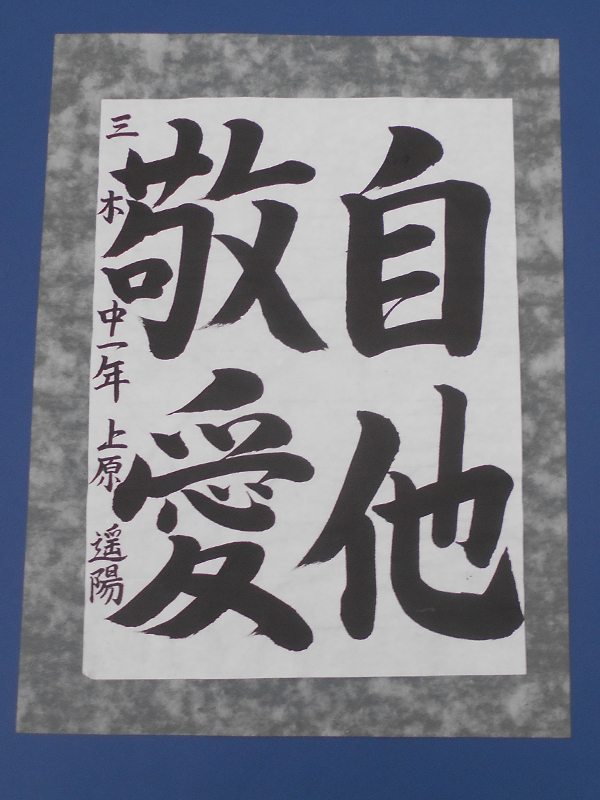 自他
敬愛
三木 中一年 上原 遥陽